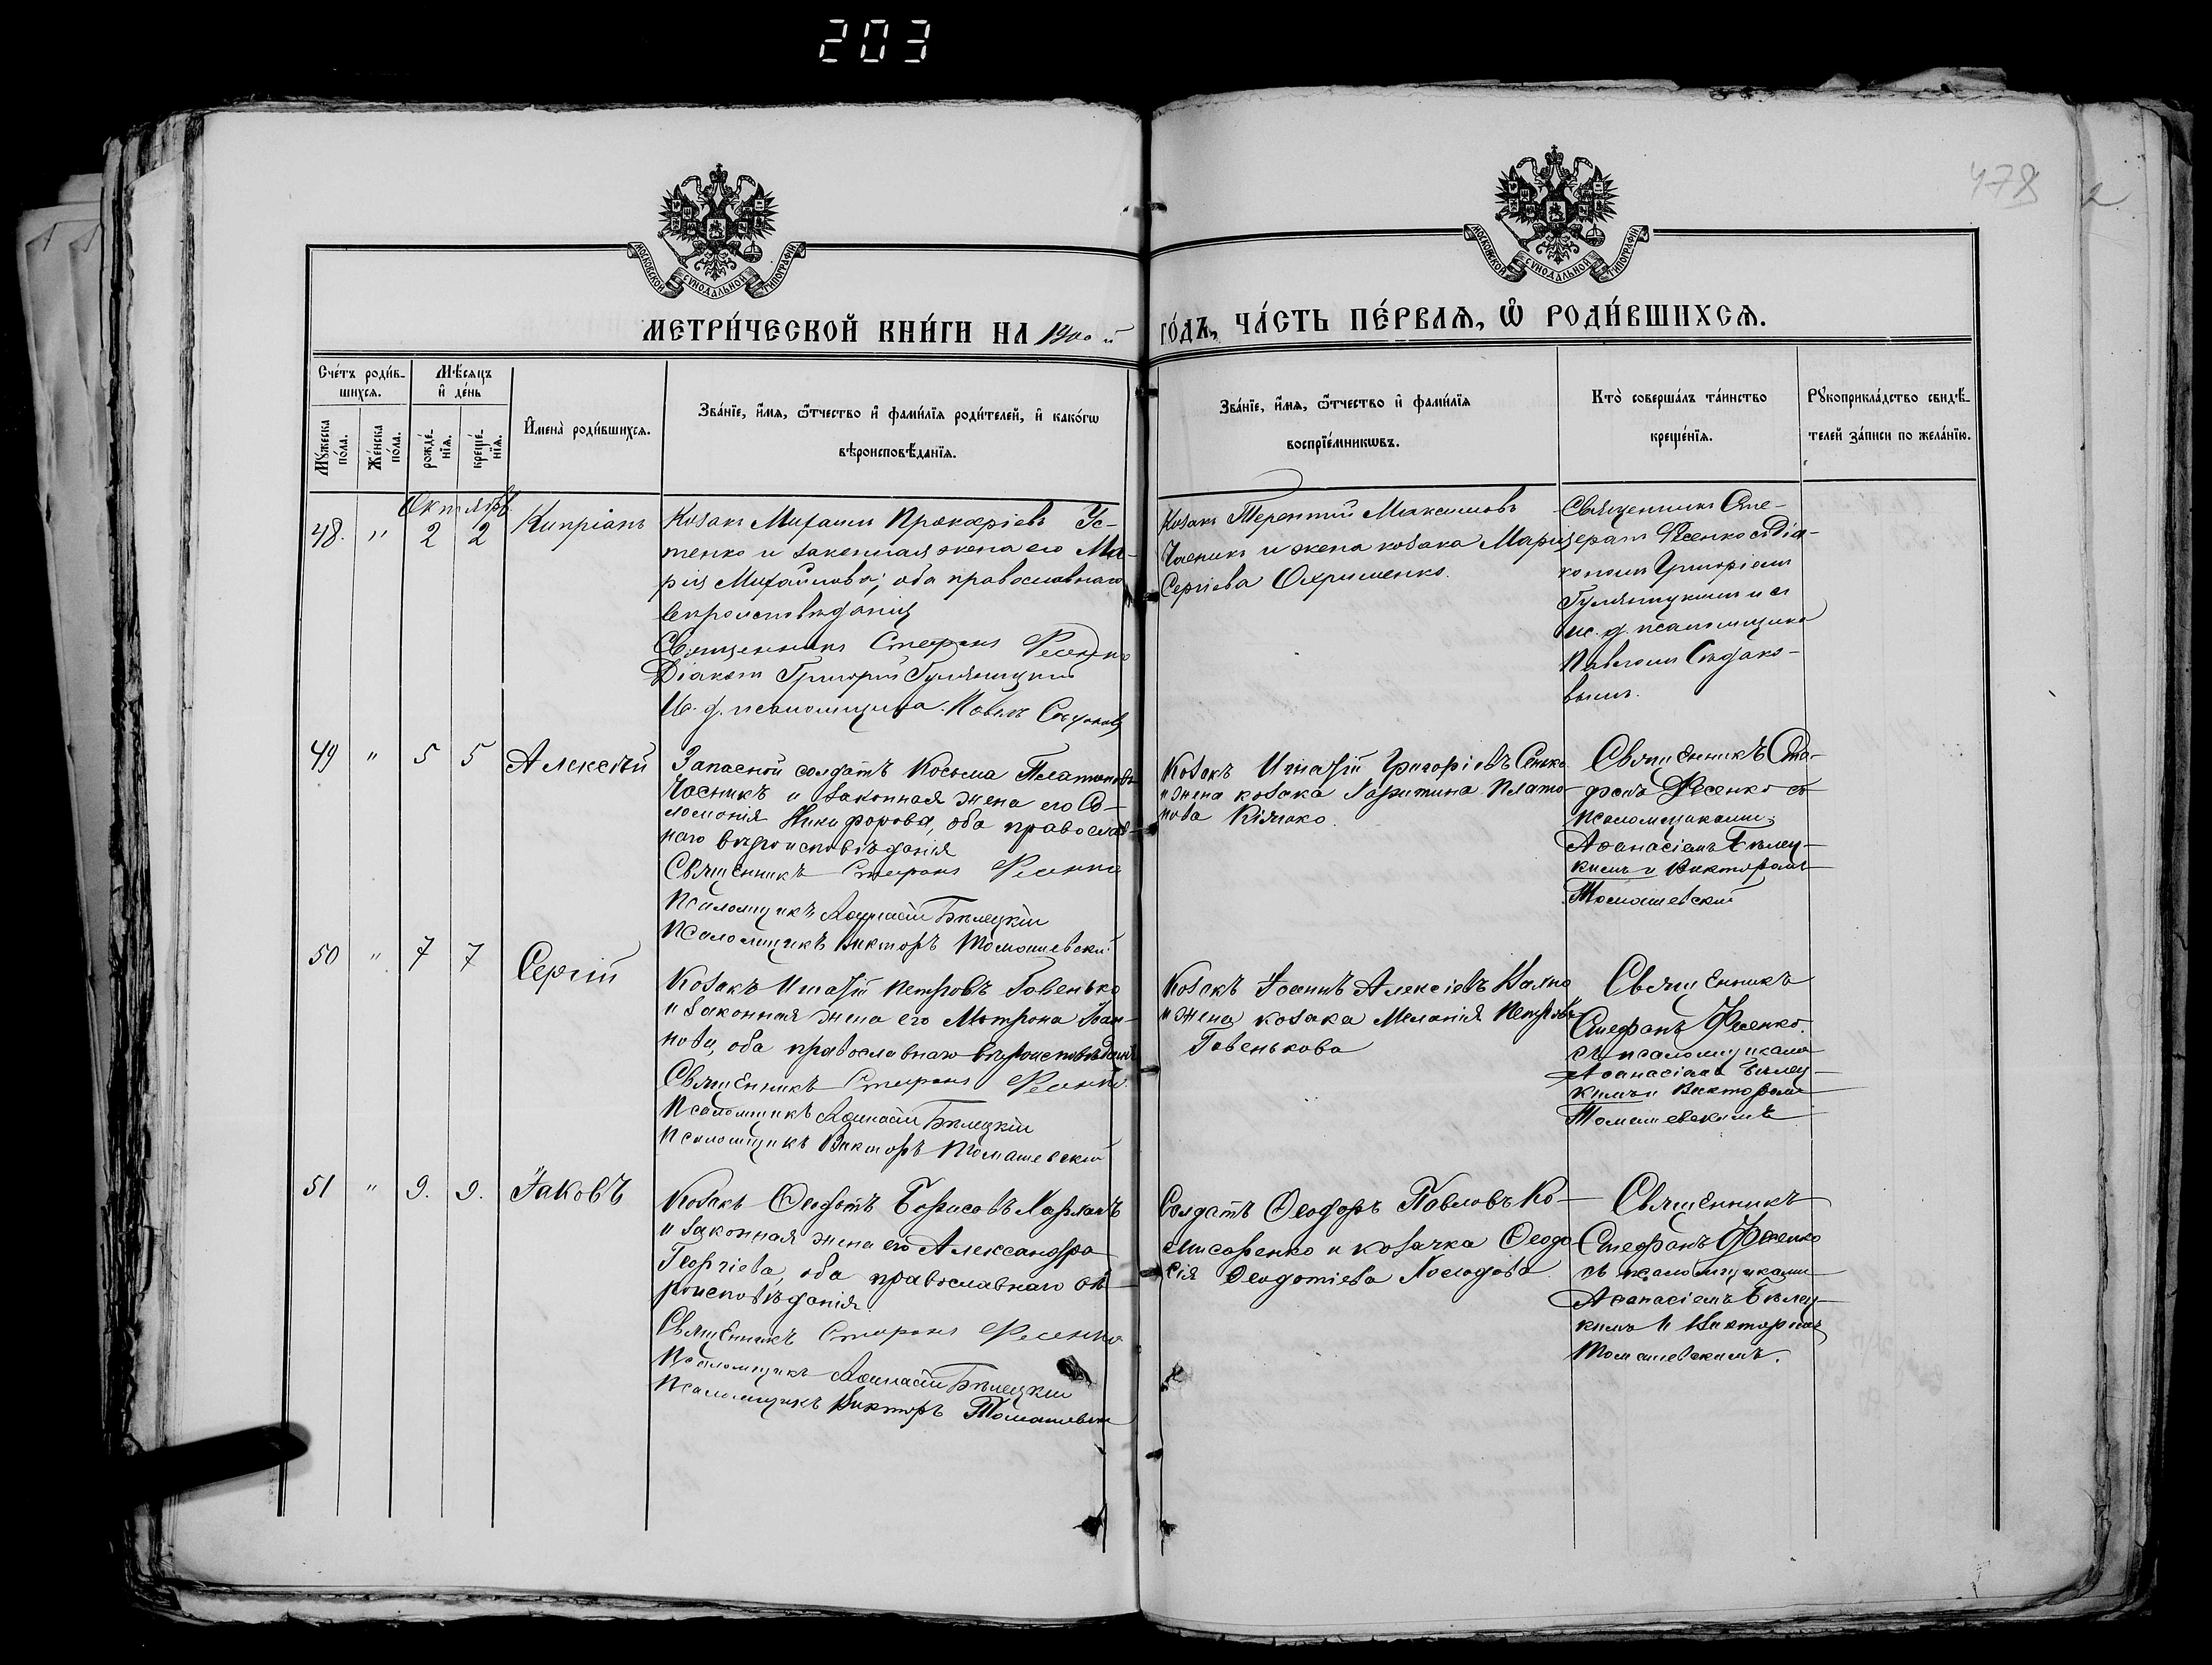 203
478
МОСКОВСКОЙ СѴНОДАЛЬНОЙ ТИПОГРАФІИ
МОСКОВСКОЙ СѴНОДАЛЬНОЙ ТИПОГРАФІИ
МЕТРИ́ЧЕСКОЙ КНИ́ГИ НА 1900 й ГО́ДЪ, ЧА́СТЬ ПЕ́РВАѦ, Ѡ҆ РОДИ́ВШИХСѦ.
Сче́тъ роди́в-
шихсѧ.
Мꙋ́жеска по́ла.
Же́нска по́ла.
Мѣ́сѧцъ
и҆ де́нь
рожде́-
нїѧ.
креще́-
нїѧ.
И҆мена̀ роди́вшихсѧ.
Зва́нїе, и҆́мѧ, ѻ҆́тчество и҆ фами́лїѧ роди́телей, и҆ како́гѡ
вѣроисповѣ́данїѧ.
Зва́нїе, и҆́мѧ, ѻ҆́тчество и҆ фами́лїѧ
воспрїе́мникѡвъ.
Кто̀ соверша́лъ та́инство
креще́нїѧ.
Рꙋкоприкла́дство свидѣ́-
телей за́писи по жела́нїю.
Октябрь
48. " 2 2 Кипріанъ
Козакъ Михаилъ Прокопіевъ Ус-
тенко и законная жена его Ма-
рія Михайлова; оба православнаго
вѣроисповѣданія
Священникъ Стефанъ Фесенко
Діаконъ Григорій Гуляницкій
И. д. псаломщика Павелъ Судаковъ
Козакъ Терентій Максимовъ
Часникъ и жена козака Марія
Сергіева Охрименко.
Священникъ Сте-
фанъ Фесенко съ Діа-
кономъ Григоріемъ
Гуляницкимъ и съ
ис. д. псаломщика
Павломъ Судако-
вымъ.
49 " 5 5 Алексѣй
Запасной солдатъ Косьма Платоновъ
Часникъ и законная жена его Со-
ломонія Никифорова, оба православ-
наго вѣроисповѣданія
Священникъ Стефанъ Фесенко
Псаломщикъ Афанасій Бѣлецкій
Псаломщикъ Викторъ Томашевскій
Козакъ Игнатій Григоріевъ Сенько
и жена козака Харитина Плато-
нова
Священникъ Сте-
фанъ Фесенко съ
псаломщиками:
Афанасіемъ Бѣлец-
кимъ и Викторомъ
Томашевскій
50 " 7 7 Сергій
Козакъ Игнатій Петровъ Говенько
и законная жена его Матрона Іоан-
нова, оба православнаго вѣроисповѣданія
Священникъ Стефанъ Фесенко
Псаломщикъ Афанасій Бѣлецкій
Псаломщикъ Викторъ Томашевскій
Козакъ Іоаннъ Алексіевъ
и жена козака Меланія Петрова
Говенькова
Священникъ
Стефанъ Фесенко
съ псаломщиками
Афанасіемъ Бѣлец-
кимъ и Викторомъ
Томашевскимъ
51 " 9. 9. Іаковъ
Козакъ Феодотъ Борисовъ Харланъ
и законная жена его Александра
Георгіева, оба православнаго вѣ-
роисповѣданія.
Священникъ Стефанъ Фесенко
Псаломщикъ Афанасій Бѣлецкій
Псаломщикъ Викторъ Томашевскій
Солдатъ Феодоръ Павловъ Ко-
мисаренко и козачка Феодо-
сія Феодотіева
Священникъ
Стефанъ Фесенко
съ псаломщиками
Афанасіемъ Бѣлец-
кимъ и Викторомъ
Томашевскимъ.